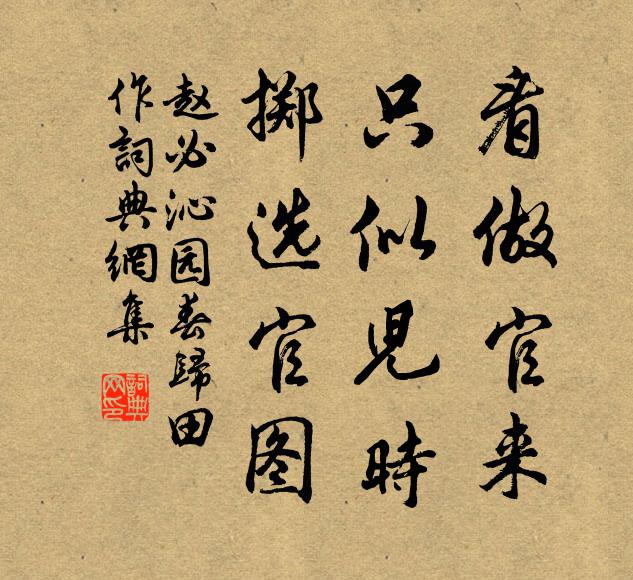 看做官来
只似児時
掷选官图
赵必沁园春歸田
作詞典網集
詞典網印